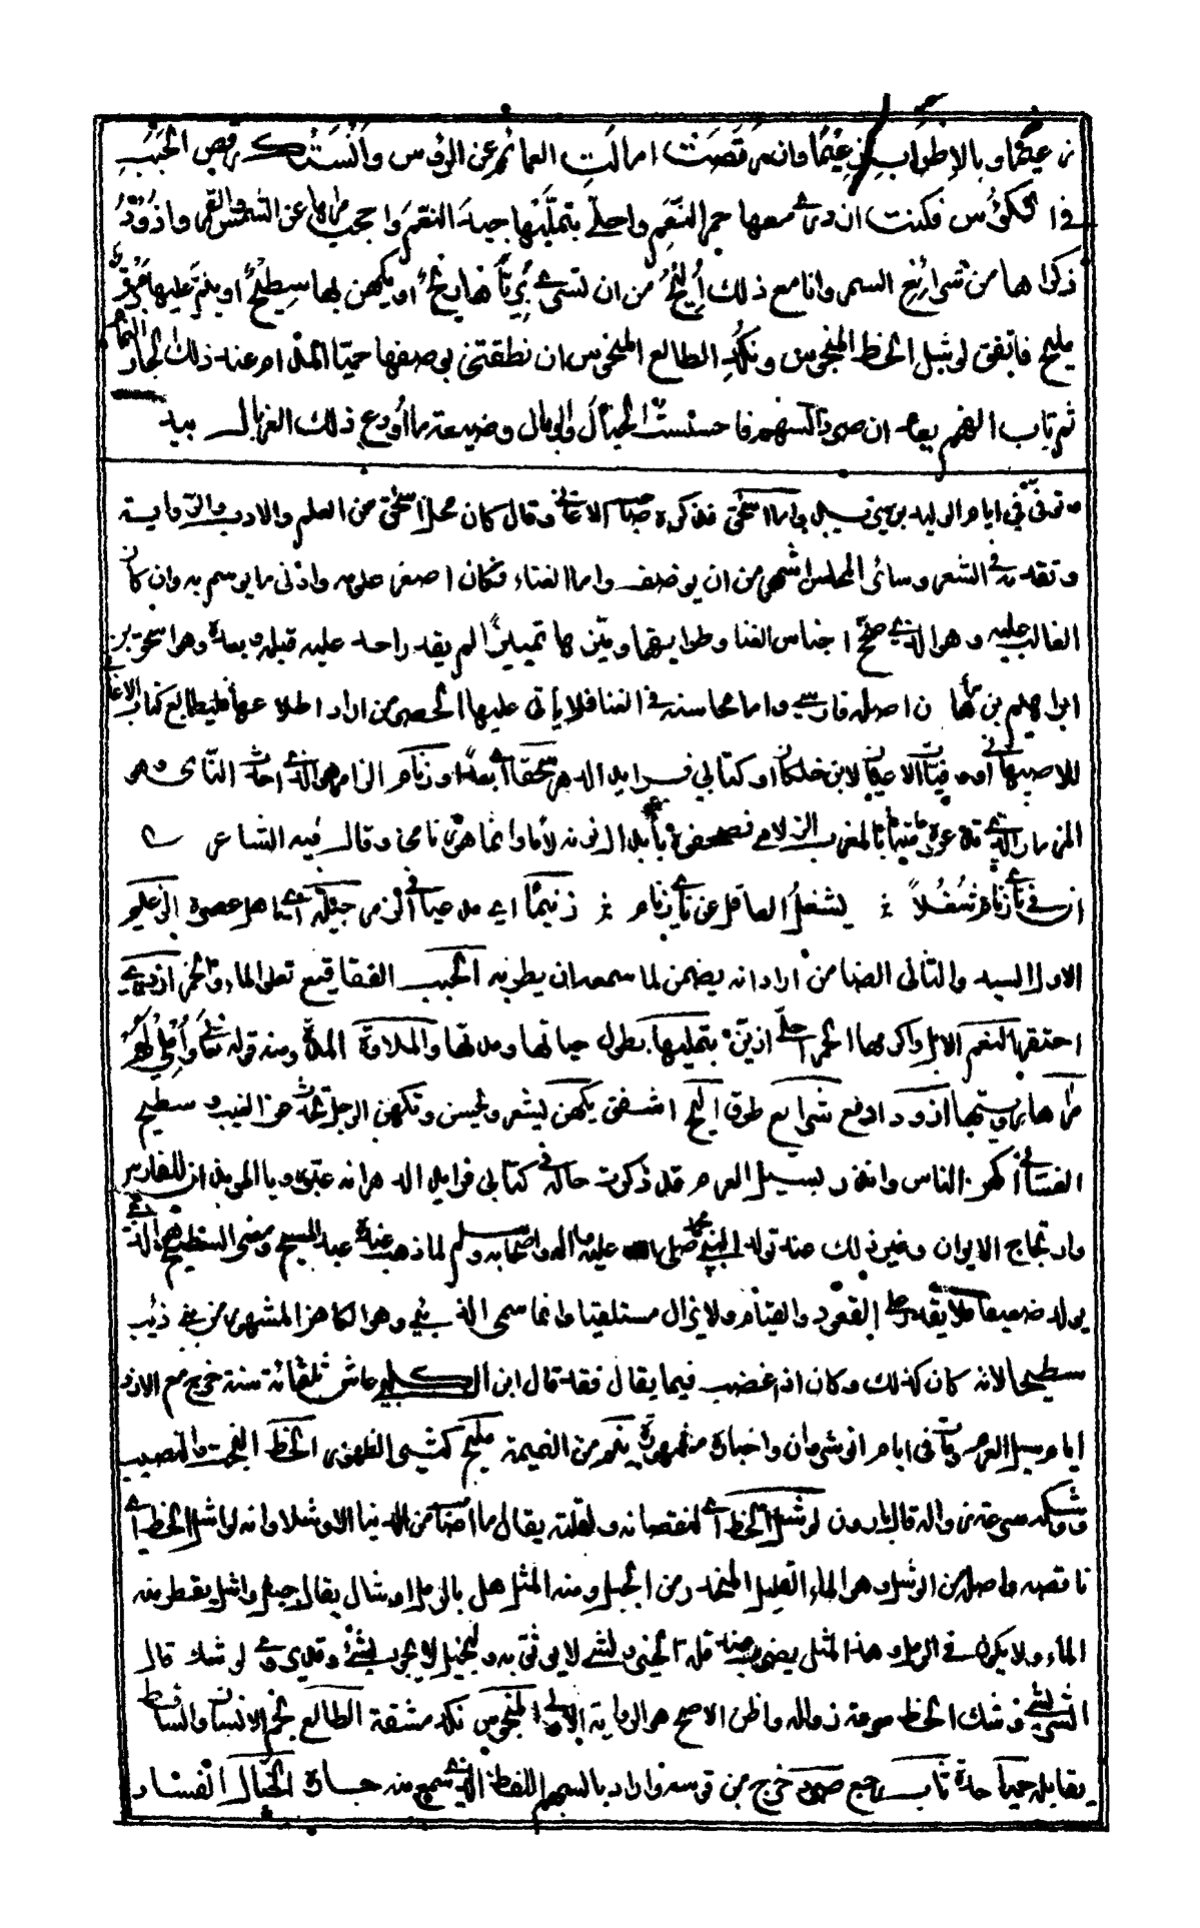 زعيمًا وبالإطراب زعيمًا وان رقصت امالت العمائم عن الرؤس وأنستك رقص الحبب
في الكؤس فكنت ازدري معها حمر النعم واحلي بتمليها جيد النعم واحجب مرآها عن الشمس والقمر واذود
ذكراها من شرائع السمر وانا مع ذلك أليح من ان تسري بريّاها ريح او يكهن بها سطيح او ينم عليها برق
مليح فاتفق لوشل الحظ المبخوس ونكد الطالع المنحوس ان نطقتني بوصفها حميّا المدام عند ذلك الجار النمام
ثم ثاب الفهم بعد ان صرد السهم فاحسست الخبال والوبال وضيعة ما اودع ذلك الغربال بيد
توفي في ايام الوليد بن يزيد اسحق فذكره صاحب الاغاني وقال كان محل اسحق من العلم والادب والرواية
وتقدمه في الشعر وسائر المحاسن اشهر من ان يوصف واما الغناء فكان اصغر علومه وادنى ما يوسم به وان كان
الغالب عليه وهو الذي صحح اجناس الغنا وطرايقها وميزها تمييزًا لم يقدر احد عليه قبله وبعده وهو اسحق بن
ابراهيم بن ماهان اصله فارسي واما محاسنه في الغنا فلا يأتي عليها الحصر من اراد اطلاعها فليطالع كتاب الاغاني
للاصبهاني او وفيات الاعيان لابن خلكان او كتابي فرايد الدهر سحقًا اي بعدًا وزنام الزامر هو الذي احدث الناي وهو
المزمار الذي تدعوه بالمغرب الزلامي فصحفوه بابدال نونه لامًا وانما هو ناي وقال فيه الشاعر
ان في ناي زنام شغلاً ؛ يشغل العاقل عن ناي زنام ؛ زنيمًا اي مدعيا في الزمر جيلة اي اهل عصره الزعيم
الاول السيد والثاني الضامن اراد انه يضمن لما سمعه ان يطربه الحبب الفقاقيع تعلو الماء والخمر ازدري
احتقر النعم الابل واكرمها الحمر احلي ازين بتمليها بطول حياتها ومدتها والملاوة المدة ومنه قوله تعالى وأملي لهم
مرآها رؤيتها اذود ادفع شرايع طرق اليح اشفق يكهن يشعر ويحس وتكهن الرجل تحدث عن الغيب وسطيح
الغساني اكهن الناس وانذر بسيل العرم قد ذكرت حاله في كتابي فرايد الدهر انه عبر رؤيا الموبذان للفارس
وارتجاج الايوان وغير ذلك عند تولد النبي محمد صلى الله عليه واله واصحابه وسلم لما ذهب عنده عبد المسيح ومعنى السطيح هو الذي
يولد ضعيفا فلا يقدر على القعود والقيام ولا يزال مستلقيا وانما سمي الذئبي وهو الكاهن المشهور من بني ذئب
سطيحا لانه كان كذلك وكان اذا غضب فيما يقال قعد قال ابن الكلبي عاش ثلثمائة سنة خرج مع الازد
ايام سيل العرم ومات في ايام انوشروان واخباره مشهورة ينم من النميمة مليح كثير الظهور الحظ البخت والنصيب
ووشكه سرعته زواله قال بارون لوشل الحظ اي لنقصانه ولقلته يقال ما اصاب من الدنيا الا وشلا وانه لواشل الحظ اي
ناقصه واصله من الوشل وهو الماء القليل المتحدر من الجبل ومنه المثل هل بالرمل اوشال يقال جبل واشل يقطر منه
الماء ولا يكون في الرمل وهذا المثل يضرب عند قلة الخير ولشي لا يوثق به ولبخيل لا يجود بشئ وقد روي لوشك قال
الشريشي وشك الحظ سرعة زواله واظن الاصح هو الرواية الاولى المنحوس نكد مشقة الطالع نجم الانسان والساقط
يقابله حميا حدة ثاب رجع صرد خرج من قوسه واراد بالسهم اللفظ الذي سمع منه جاره الخبال الفساد